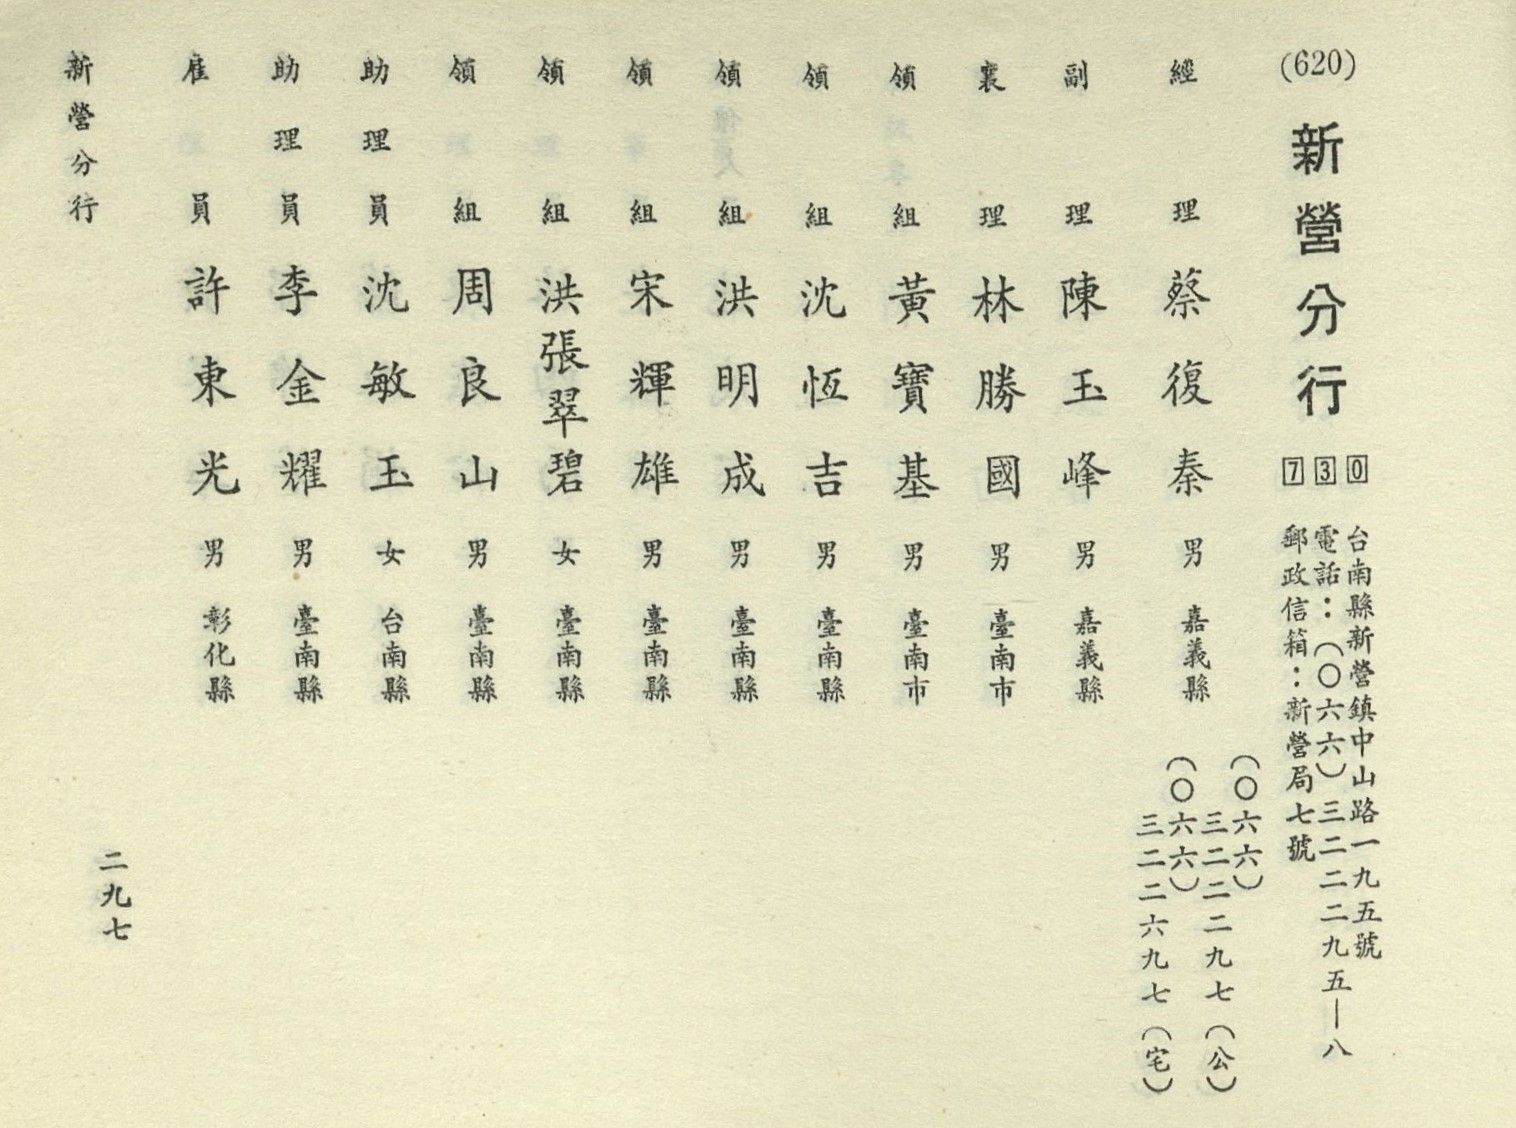 (620)
新營分行
730
台南縣新營鎮中山路一九五號
電話：（〇六六）三二二二九五—八
郵政信箱：新營局七號
經理 蔡復秦 男 嘉義縣
（〇六六）
三二二二九七（公）
（〇六六）
三二二六九七（宅）
副理 陳玉峰 男 嘉義縣
襄理 林勝國 男 臺南市
領組 黃寶基 男 臺南市
領組 沈恆吉 男 臺南縣
領組 洪明成 男 臺南縣
領組 宋輝雄 男 臺南縣
領組 洪張翠碧 女 臺南縣
領組 周良山 男 臺南縣
助理員 沈敏玉 女 台南縣
助理員 李金耀 男 臺南縣
雇員 許東光 男 彰化縣
新營分行
二九七